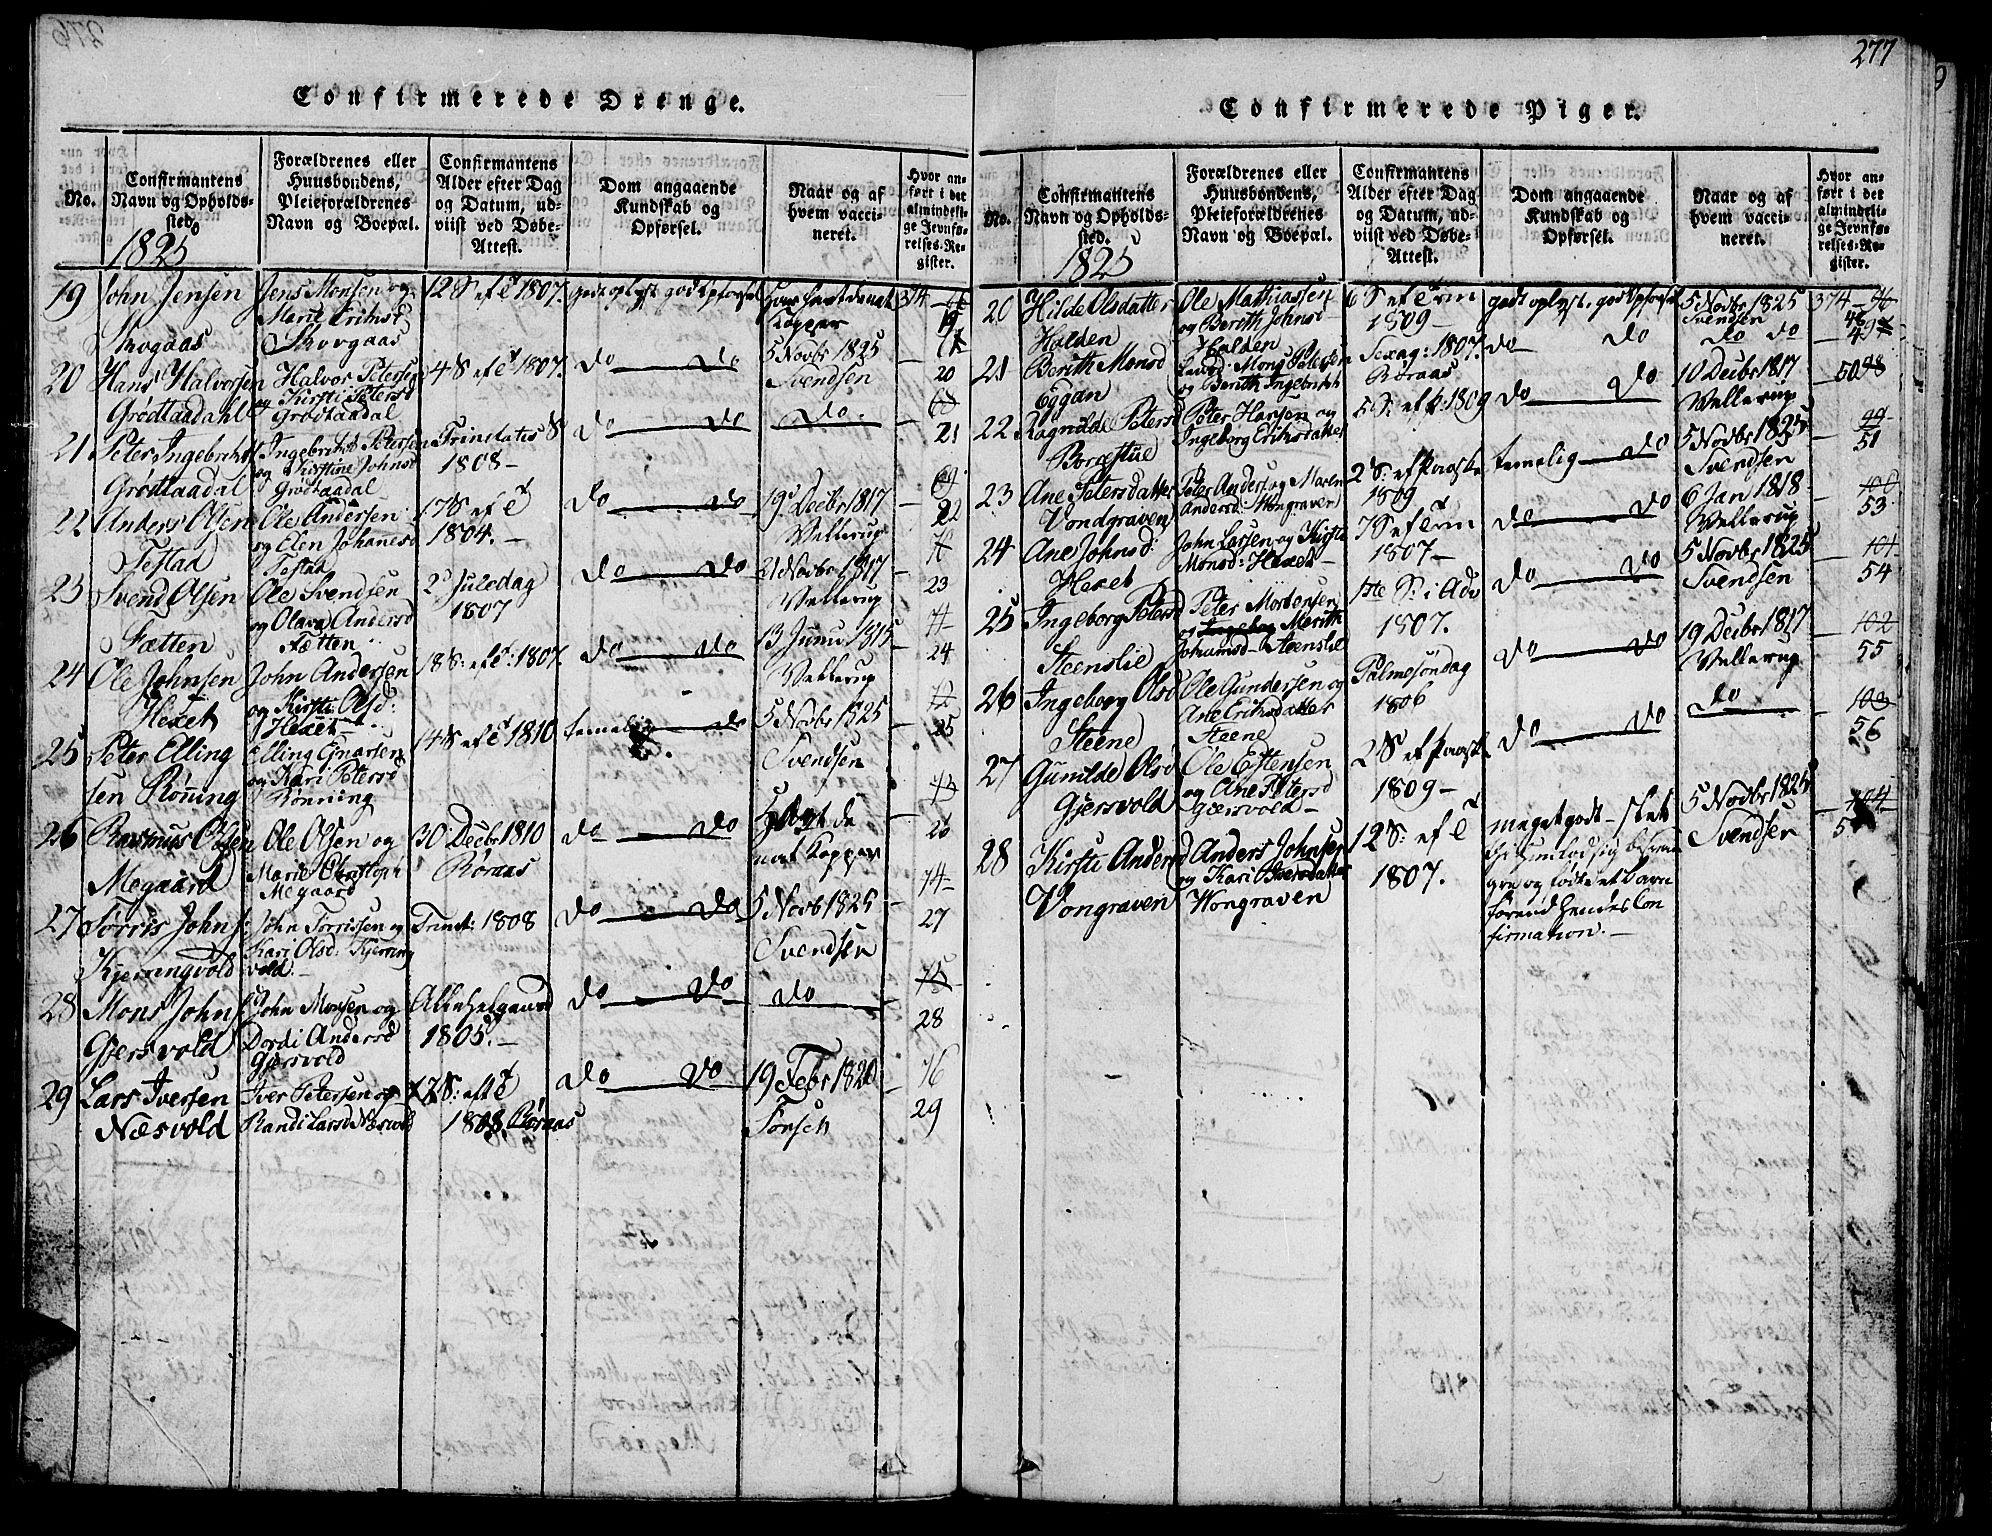 277
Confirmerede Drenge.
No.
Confirmantens
Navn og Opholds-
sted.
1825
Forældrenes eller
Huusbondens,
Pleieforældrenes
Navn og Boepæl.
Confirmantens
Alder efter Dag
og Datum, ud-
viist ved Døbe-
Attest.
Dom angaaende
Kundskab og
Opførsel.
Naar og af
hvem vacci-
neret.
Hvor an-
ført i det
almindeli-
ge Jevnfø-
relses-Re-
gister.
19 John Jensen
Skogaas
Jens Monsen og
Marit Eriksd
Skovgaas
12 S. ef t 1807.
godt oplyst god Opførsel
Kopper
374
19
20 Hans Halvorsen
Grødtaadahl
Halvor Petersen
og Kirsti Petersd
Grødtaadal
4 S ef t 1807.
do do
5 Novbr 1825
Svendsen
20
21 Peter Ingebrichts
Grødtaadal
Ingebricht Petersen
og Kirstine Johnsd
Grødtaadal
Trinitatis S
1808
do do
do
21
22 Anders Olsen
Testaa
Ole Andersen
og Elen Johannesd
Testaa
17 S ef t
1804.
do do
19 Decbr 1817
Vellerup
22
23 Svend Olsen
Fætten
Ole Svendsen
og Olava Andersd
Fætten
2 Juledag
1807
do do
21 Novbr 1817
Vellerup
23
24 Ole Johnsen
Hexet
John Andersen
og Kirsti Olsd:
Hexet
18 S: ef t: 1807.
do do
13 Juni 1815
Vellerup
24
25 Peter Elling
sen Röning
Elling Einarsen
og Kari Petersd
Rönning
14 S ef t 1810
temelig do
5 Novbr 1825
Svendsen
25
26 Rasmus Olsen
Megaard
Ole Olsen og
Marie Christoph
Megaard
30 Decbr 1810
Røraas
do do
Kopper
26
27 Torris Johns:
Kjerringvold
John Torrissen og
Kari Olsd: Kjerring
vold
Trinit: 1808
do do
5 Novb 1825
Svendsen
27
28 Mons Johns
Gjersvold
John Monsen og
Dordi Andersd
Gjersvold
Allehelgensd
1805.
do do
do
28
29 Lars Iversen
Næsvold
Iver Petersen og
Randi Larsd Næsvold
17 S: ef t
1808 Røraas
do do
19 Febr 1820
76
29
Confirmerede Piger.
No.
Confirmantens
Navn og Opholds-
sted.
1825
Forældrenes eller
Huusbondens,
Pleieforældrenes
Navn og Boepæl.
Confirmantens
Alder efter Dag
og Datum, ud-
viist ved Døbe-
Attest.
Dom angaaende
Kundskab og
Opførsel.
Naar og af
hvem vacci-
neret.
Hvor an-
ført i det
almindeli-
ge Jevnfø-
relses-Re-
gister.
20 Hilde Olsdatter
Halden
Ole Mathiassen
og Berith Johnsd
Halden
6 S ef Trin
1809
godt oplyst. god Opførsel
5 Novbr 1825
Svendsen
374
21 Berith Monsd
Eggan
Mons Petersen
og Berith Ingebricht
Sexag: 1807.
Røraas
do do
do do
49
22 Ragnilde Petersd
Borgstue
Peter Hansen og
Ingeborg Eriksdatter
5 S: ef p: 1809
do do
10 Decbr 1817
Vellerup
50 98
23 Ane Petersdatter
Vondgraven
Peter Anders og Maren
Andersd: Wongraven
2 S: ef Paaske
1809
temelig do
5 Novbr 1825
Svendsen
99
51
24 Ane Johnsd:
Hexet
John Larsen og Kirsti
Monsd: Hexet
7 S ef Trin
1807
do do
6 Jan 1818
Vellerup
100
53
25 Ingeborg Petersd
Steenslie
Peter Mortensen
og Ingeborg Merith
Johannsd Steenslie
1ste S: i Adv
1807.
do do
5 Novbr 1825
Svendsen
101
54
26 Ingeborg Olsd
Steene
Ole Gundersen og
Ane Eriksdatter
Steene
Palmesöndag
1806
do do
19 Decbr 1817
Vellerup
102
55
27 Gunilde Olsd
Gjersvold
Ole Estensen
og Ane Petersd
Gjærsvold
2 S ef Paaske
1809
do do
do
103
56
28 Kirsti Andersd
Vongraven
Anders Johnsen
og Kari Iversdatter
Wongraven
12 S: ef t
1807.
meget godt slet
thi hun lod sig besvan
gre og fødte et Barn
forend hendes Con
firmation.
5 Novbr 1825
Svendsen
104